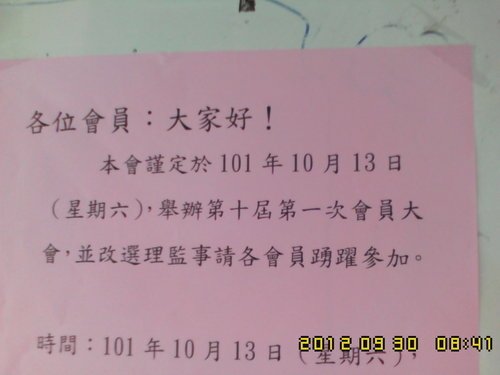 各位會員：大家好！
本會謹定於 101 年 10 月 13 日
（星期六），舉辦第十屆第一次會員大
會，並改選理監事請各會員踴躍參加。
時間：101 年 10 月 13 日（星期六），
2012 09 30 08:41